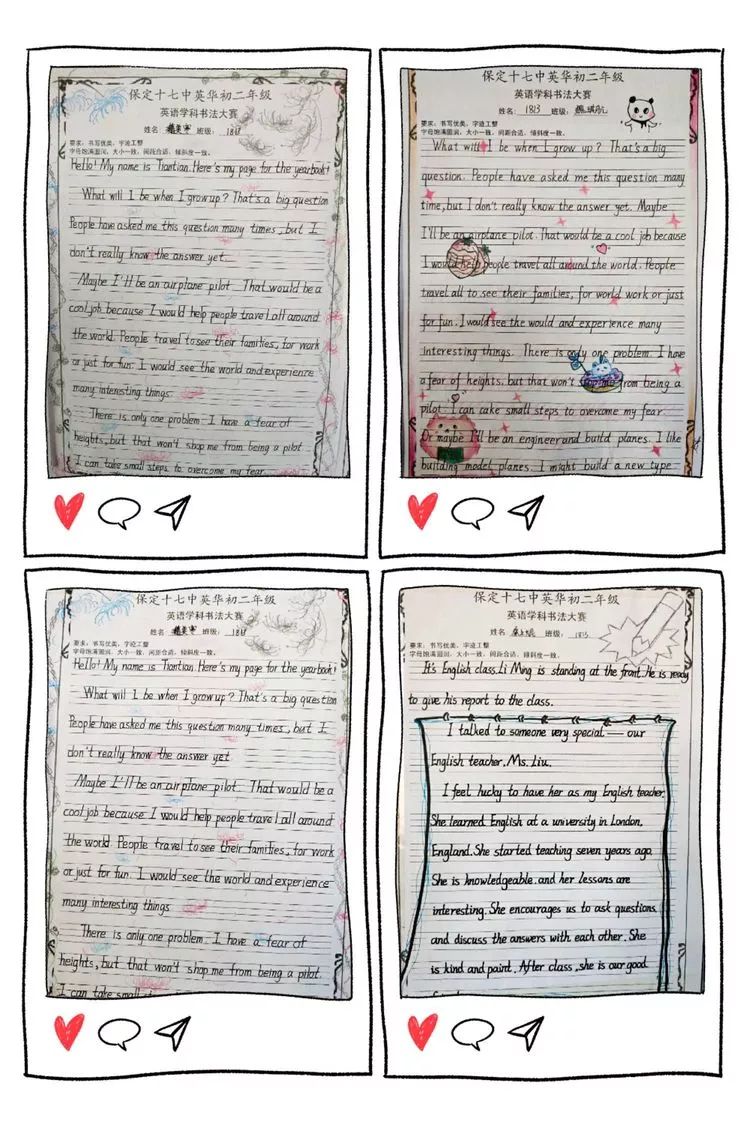 保定十七中英华初二年级
英语学科书法大赛
姓名: 班级:
要求:书写优美,字迹工整
字母饱满圆润、大小一致、间距合适、倾斜度一致。
Hello! My name is Tiantian. Here's my page for the yearbook!
What will I be when I grow up? That's a big question
People have asked me this question many times, but I
don't really know the answer yet.
Maybe I'll be an airplane pilot. That would be a
cool job because I would help people travel all around
the world. People travel to see their families, for work
or just for fun. I would see the world and experience
many interesting things
There is only one problem. I have a fear of
heights, but that won't shop me from being a pilot.
I can take small steps to overcome my fear
保定十七中英华初二年级
英语学科书法大赛
姓名: 1813 班级:
要求:书写优美,字迹工整
字母饱满圆润、大小一致、间距合适、倾斜度一致。
What will I be when I grow up? That's a big
question. People have asked me this question many
time, but I don't really know the answer yet. Maybe
I'll be an airplane pilot. That would be a cool job because
I would help people travel all around the world. People
travel all to see their families, for world work or just
for fun. I would see the would and experience many
interesting things. There is only one problem. I have
a fear of heights. but that won't me from being a
pilot. I can cake small steps to overcome my fear
Or maybe I'll be an engineer and build planes. I like
building model planes. I might build a new type
保定十七中英华初二年级
英语学科书法大赛
姓名 班级:
要求:书写优美,字迹工整
字母饱满圆润、大小一致、间距合适、倾斜度一致。
Hello! My name is Tiantian. Here's my page for the yearbook!
What will I be when I grow up? That's a big question
People have asked me this question many times, but I
don't really know the answer yet
Maybe I'll be an airplane pilot. That would be a
cool job because I would help people travel all around
the world. People travel to see their families, for work
or just for fun. I would see the world and experience
many interesting things
There is only one problem. I have a fear of
heights, but that won't shop me from being a pilot.
I can take small
保定十七中英华初二年级
英语学科书法大赛
姓名: 班级: 1813.
要求:书写优美,字迹工整
字母饱满圆润、大小一致、间距合适、倾斜度一致。
It's English class. Li Ming is standing at the front. He is ready
to give his report to the class.
I talked to someone very special — our
English teacher. Ms. Liu.
I feel lucky to have her as my English teacher.
She learned English at a university in London,
England. She started teaching seven years ago.
She is knowledgeable. and her lessons are
interesting. She encourages us to ask questions
and discuss the answers with each other. She
is kind and paint. After class, she is our good